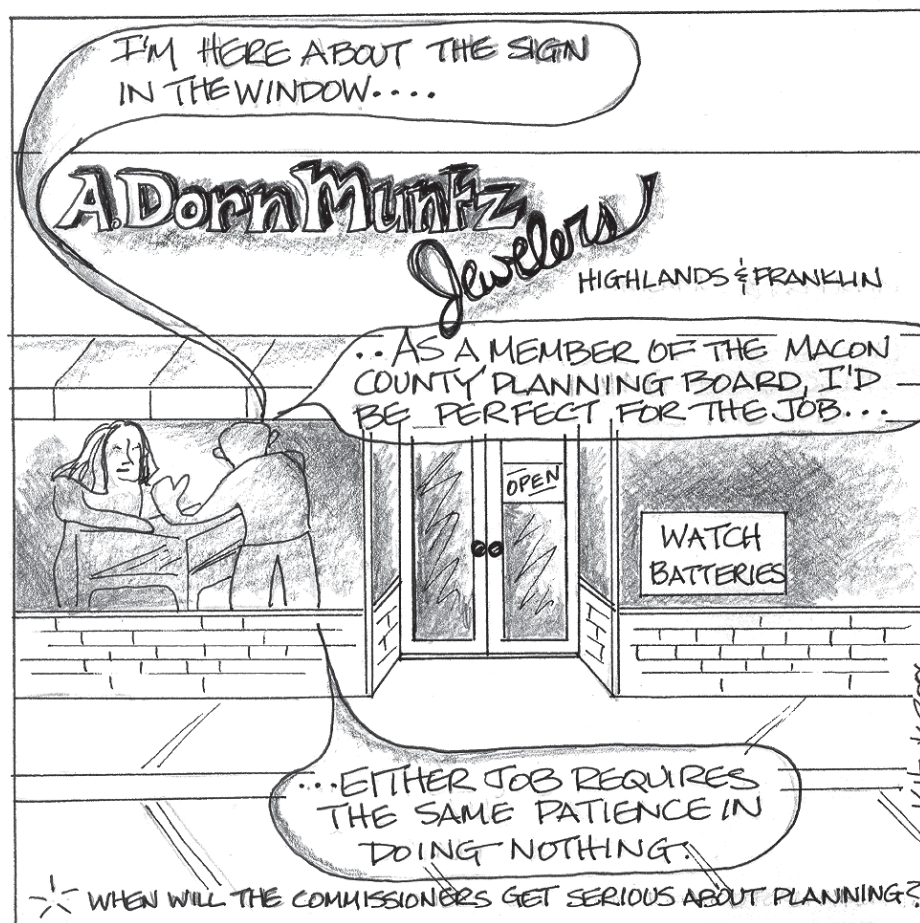 I'M HERE ABOUT THE SIGN
IN THE WINDOW....
A. Dorn Muntz
Jewelers
HIGHLANDS & FRANKLIN
..AS A MEMBER OF THE MACON
COUNTY PLANNING BOARD, I'D
BE PERFECT FOR THE JOB...
OPEN
WATCH
BATTERIES
...EITHER JOB REQUIRES
THE SAME PATIENCE IN
DOING NOTHING.
WHEN WILL THE COMMISSIONERS GET SERIOUS ABOUT PLANNING?